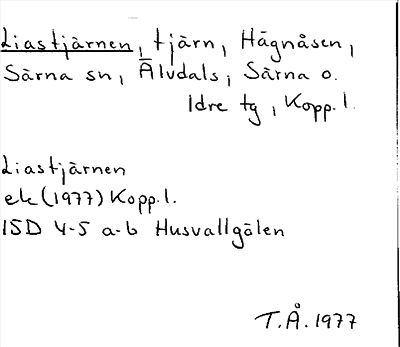 Liastjärnen, tjärn, Hägnåsen,
Särna sn, Älvdals, Särna o.
Idre tg, Kopp.l.
Liastjärnen
ek (1977) Kopp.l.
15D 4-5 a-b Husvallgölen
T.Å. 1977